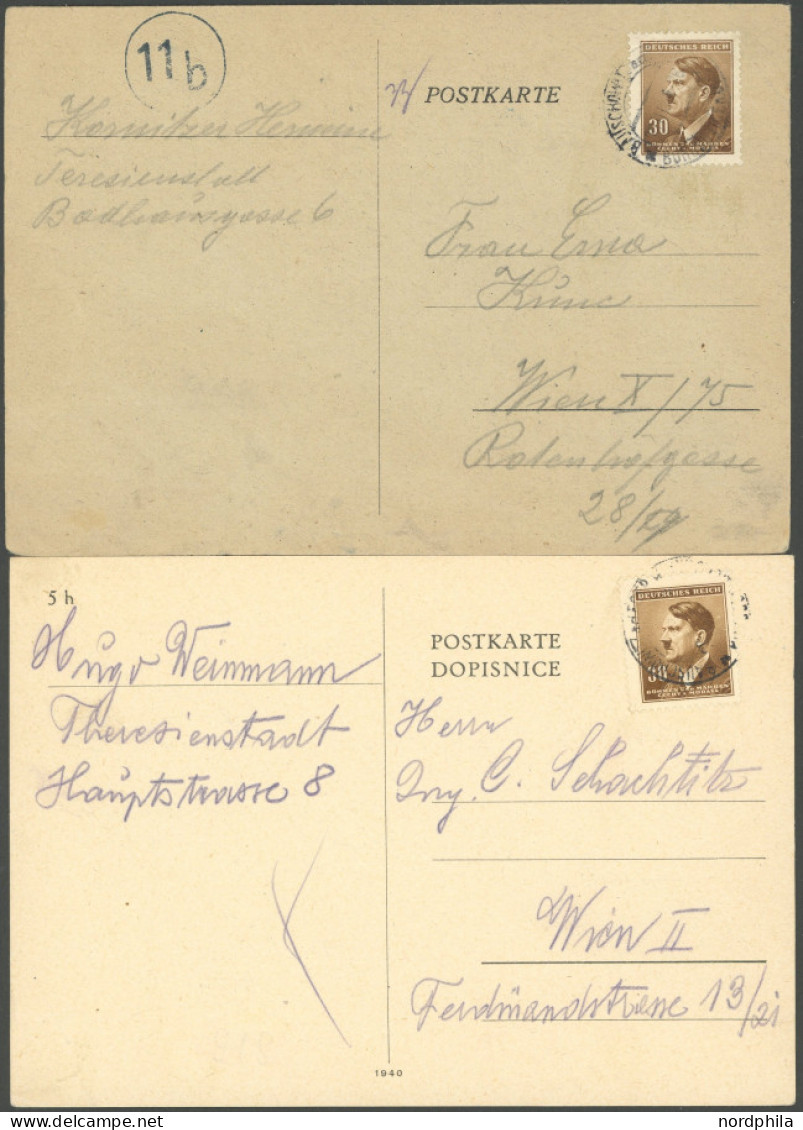 11b
Kornitzer Hermine
Teresienstatt
Badhausgasse 6
POSTKARTE
DEUTSCHES REICH
30
BÖHMEN U. MÄHREN
ČECHY A MORAVA
BAUSCHOWITZ
Frau Erna
Kunc
Wien X/75
Rotenhofgasse
28/
5 h
Hugo Weinmann
Theresienstadt
Hauptstrasse 8
POSTKARTE
DOPISNICE
DEUTSCHES REICH
30
BÖHMEN U. MÄHREN
ČECHY A MORAVA
Herrn
Ing. C. Schachtitz
Wien II
Ferdinandstrasse 13/21
1940
nordphila